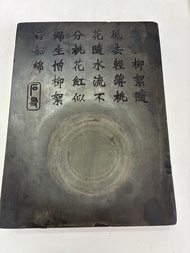 柳絮隨
風去輕薄桃
花隨水流不
分桃花紅似
錦生憎柳絮
白如綿